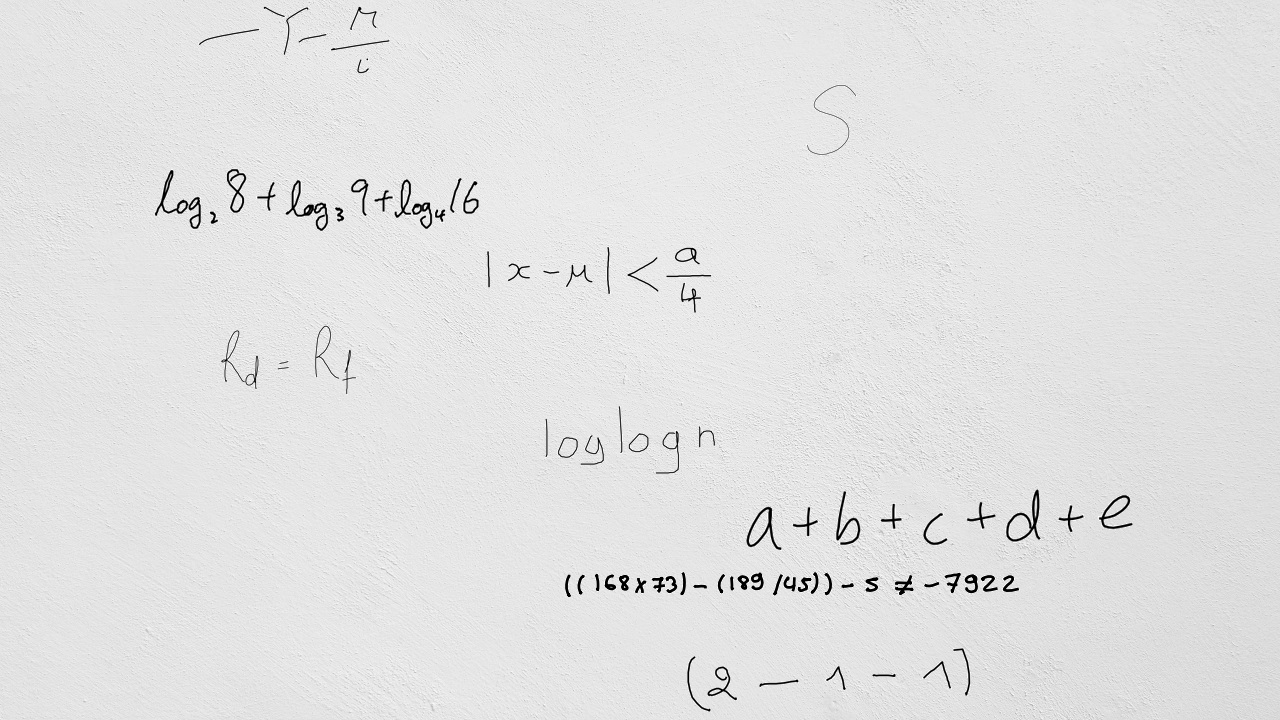 -γ-\frac{r}{i}
S
log₂ 8 + log₃ 9 + log₄ 16
|x - μ| < \frac{a}{4}
R_d = R_f
log log n
a + b + c + d + e
((168 × 73) - (189 / 45)) - s ≠ -7922
(2 - 1 - 1)